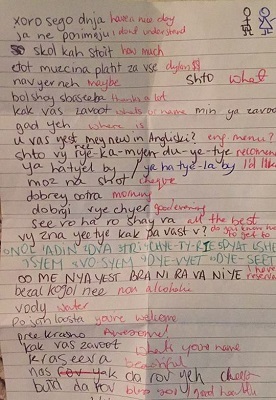 xoro sego dnja have a nice day
ja ne ponimaju i dont understand
skol kah stoit how much
dot muzcina platit za vse
nav yer neh maybe
shto what
bolshay shaseeba thanks a lot
kak vas zavoot whats ur name min ya zavoot
gad yeh where is
u vas yest meynew in Angliski? eng menu?
shto vy rye-ka-myen-du-ye-tye recomend
ya hatyel by / ya ha tye-la by i'd like
moz na shot / cheque
dobrey ootra morning
dobrai vye chyer good evening
see vo ha ro shay va all the best
vy zna ye tye kak pa vast v? do you know how to get to
NOL ADIN DVA TRI TYE-TY-RIE PYAT SHE
SYEM VO-SYEM DYE-VYET DYE-SEET
OO ME NYA YEST BRA NI RA VA NI YE i have reservation
bezal kogol nee non alcoholic
vody water
po zah loosta youre welcome
pree krasno Awesome!
kak vas zavoot whats your name
kraseeva beautiful
nas da rov yeh cheers
bud da rov good health